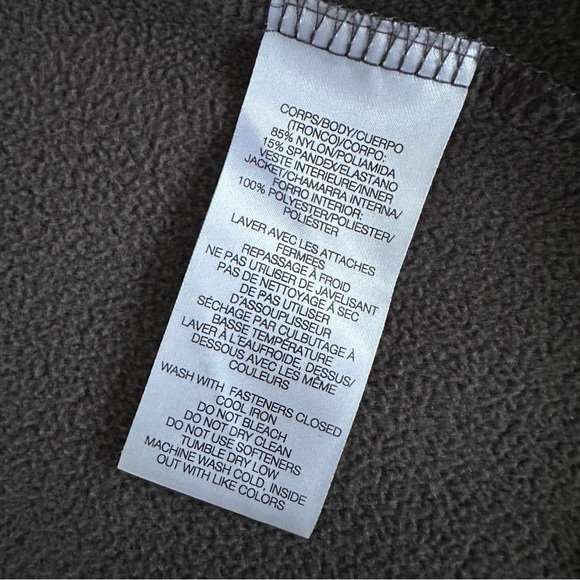 CORPS/BODY/CUERPO
(TRONCO)/CORPO:
85% NYLON/POLIAMIDA
15% SPANDEX/ELASTANO
VESTE INTERIEURE/INNER
JACKET/CHAMARRA INTERNA/
FORRO INTERIOR:
100% POLYESTER/POLIESTER/
POLIÉSTER
LAVER AVEC LES ATTACHES
FERMEES
REPASSAGE À FROID
NE PAS UTILISER DE JAVELISANT
PAS DE NETTOYAGE À SEC
DE PAS UTILISER
D'ASSOUPLISSEUR
SÉCHAGE PAR CULBUTAGE À
BASSE TEMPÉRATURE
LAVER À L'EAUFROIDE, DESSUS/
DESSOUS AVEC LES MÊME
COULEURS
WASH WITH FASTENERS CLOSED
COOL IRON
DO NOT BLEACH
DO NOT DRY CLEAN
DO NOT USE SOFTENERS
TUMBLE DRY LOW
MACHINE WASH COLD, INSIDE
OUT WITH LIKE COLORS